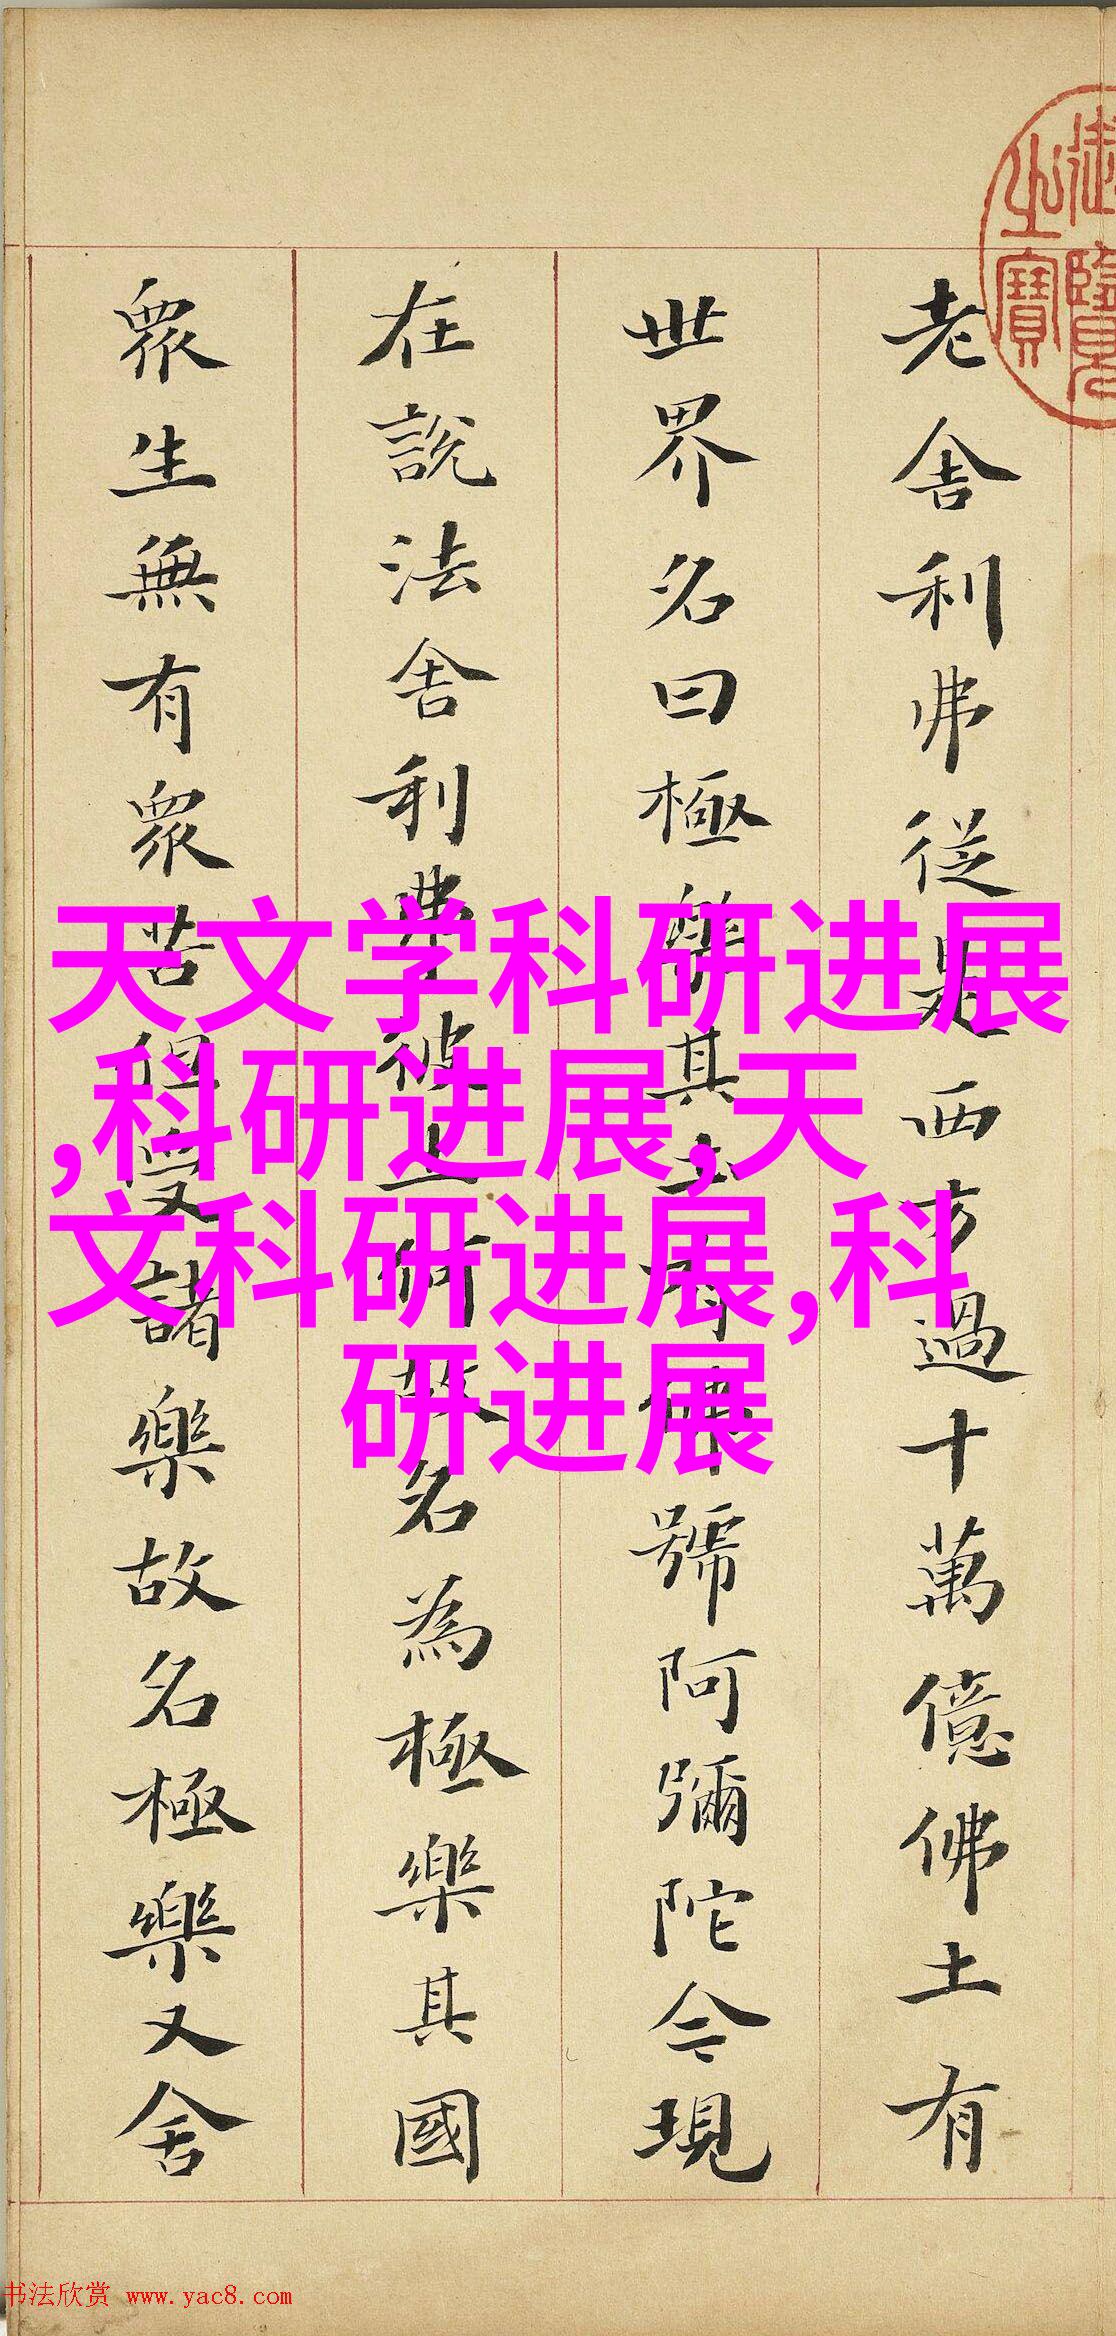 老舍利弗從是西方過十萬億佛土有
世界名曰極樂其土有佛號阿彌陀今現
在說法舍利弗彼土何故名為極樂其國
眾生無有眾苦但受諸樂故名極樂又舍
御覽之寶
天文学科研进展
,科研进展,天
文科研进展,科
研进展
书法欣赏 www.yac8.com